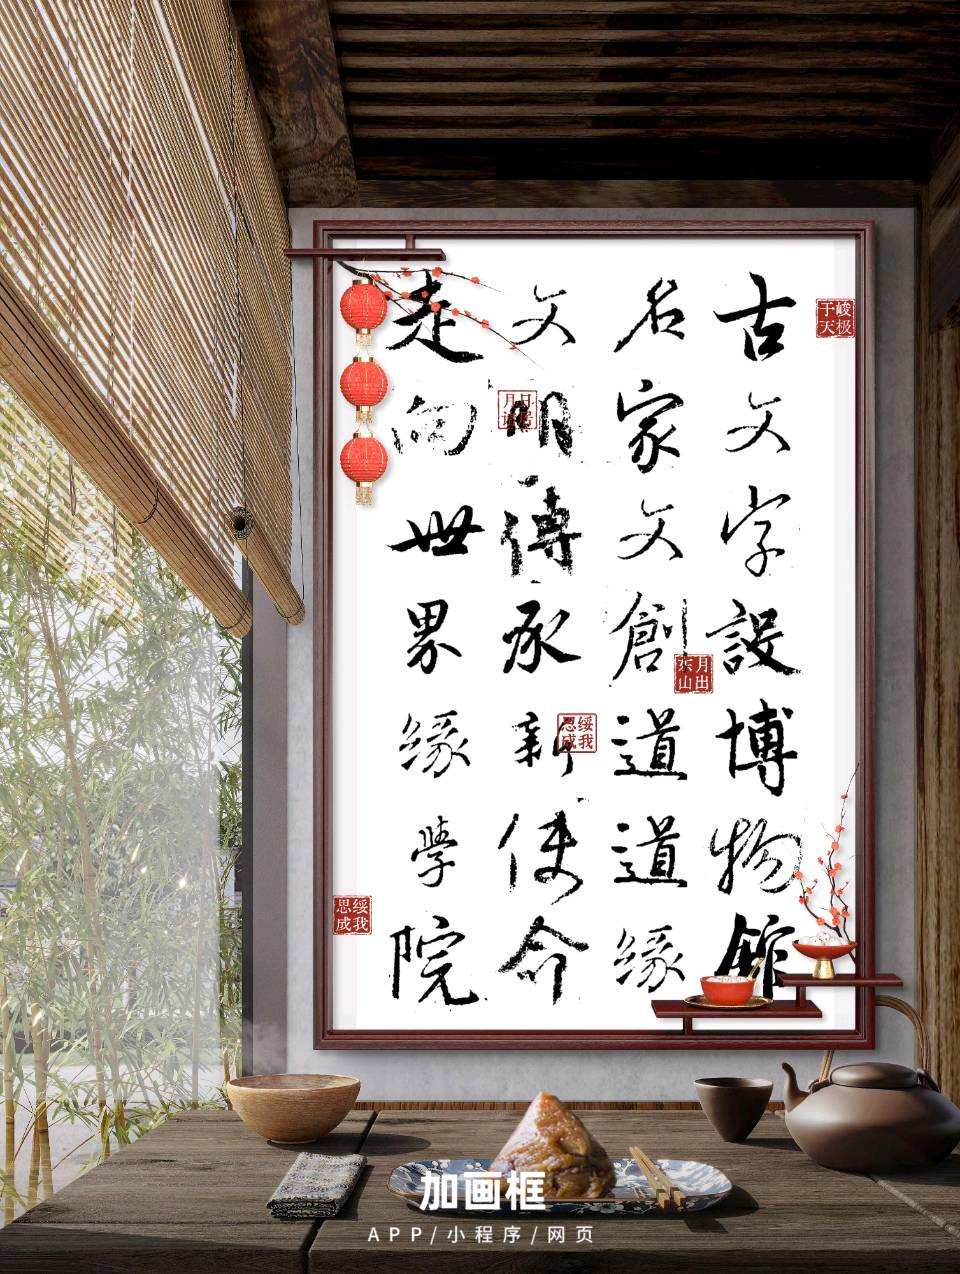 古文字設博物館
名家文創道道緣
文明傳承新使命
走向世界缘學院
峻极于天
日居月诸
月出东山
绥我思成
绥我思成
加画框
APP/小程序/网页